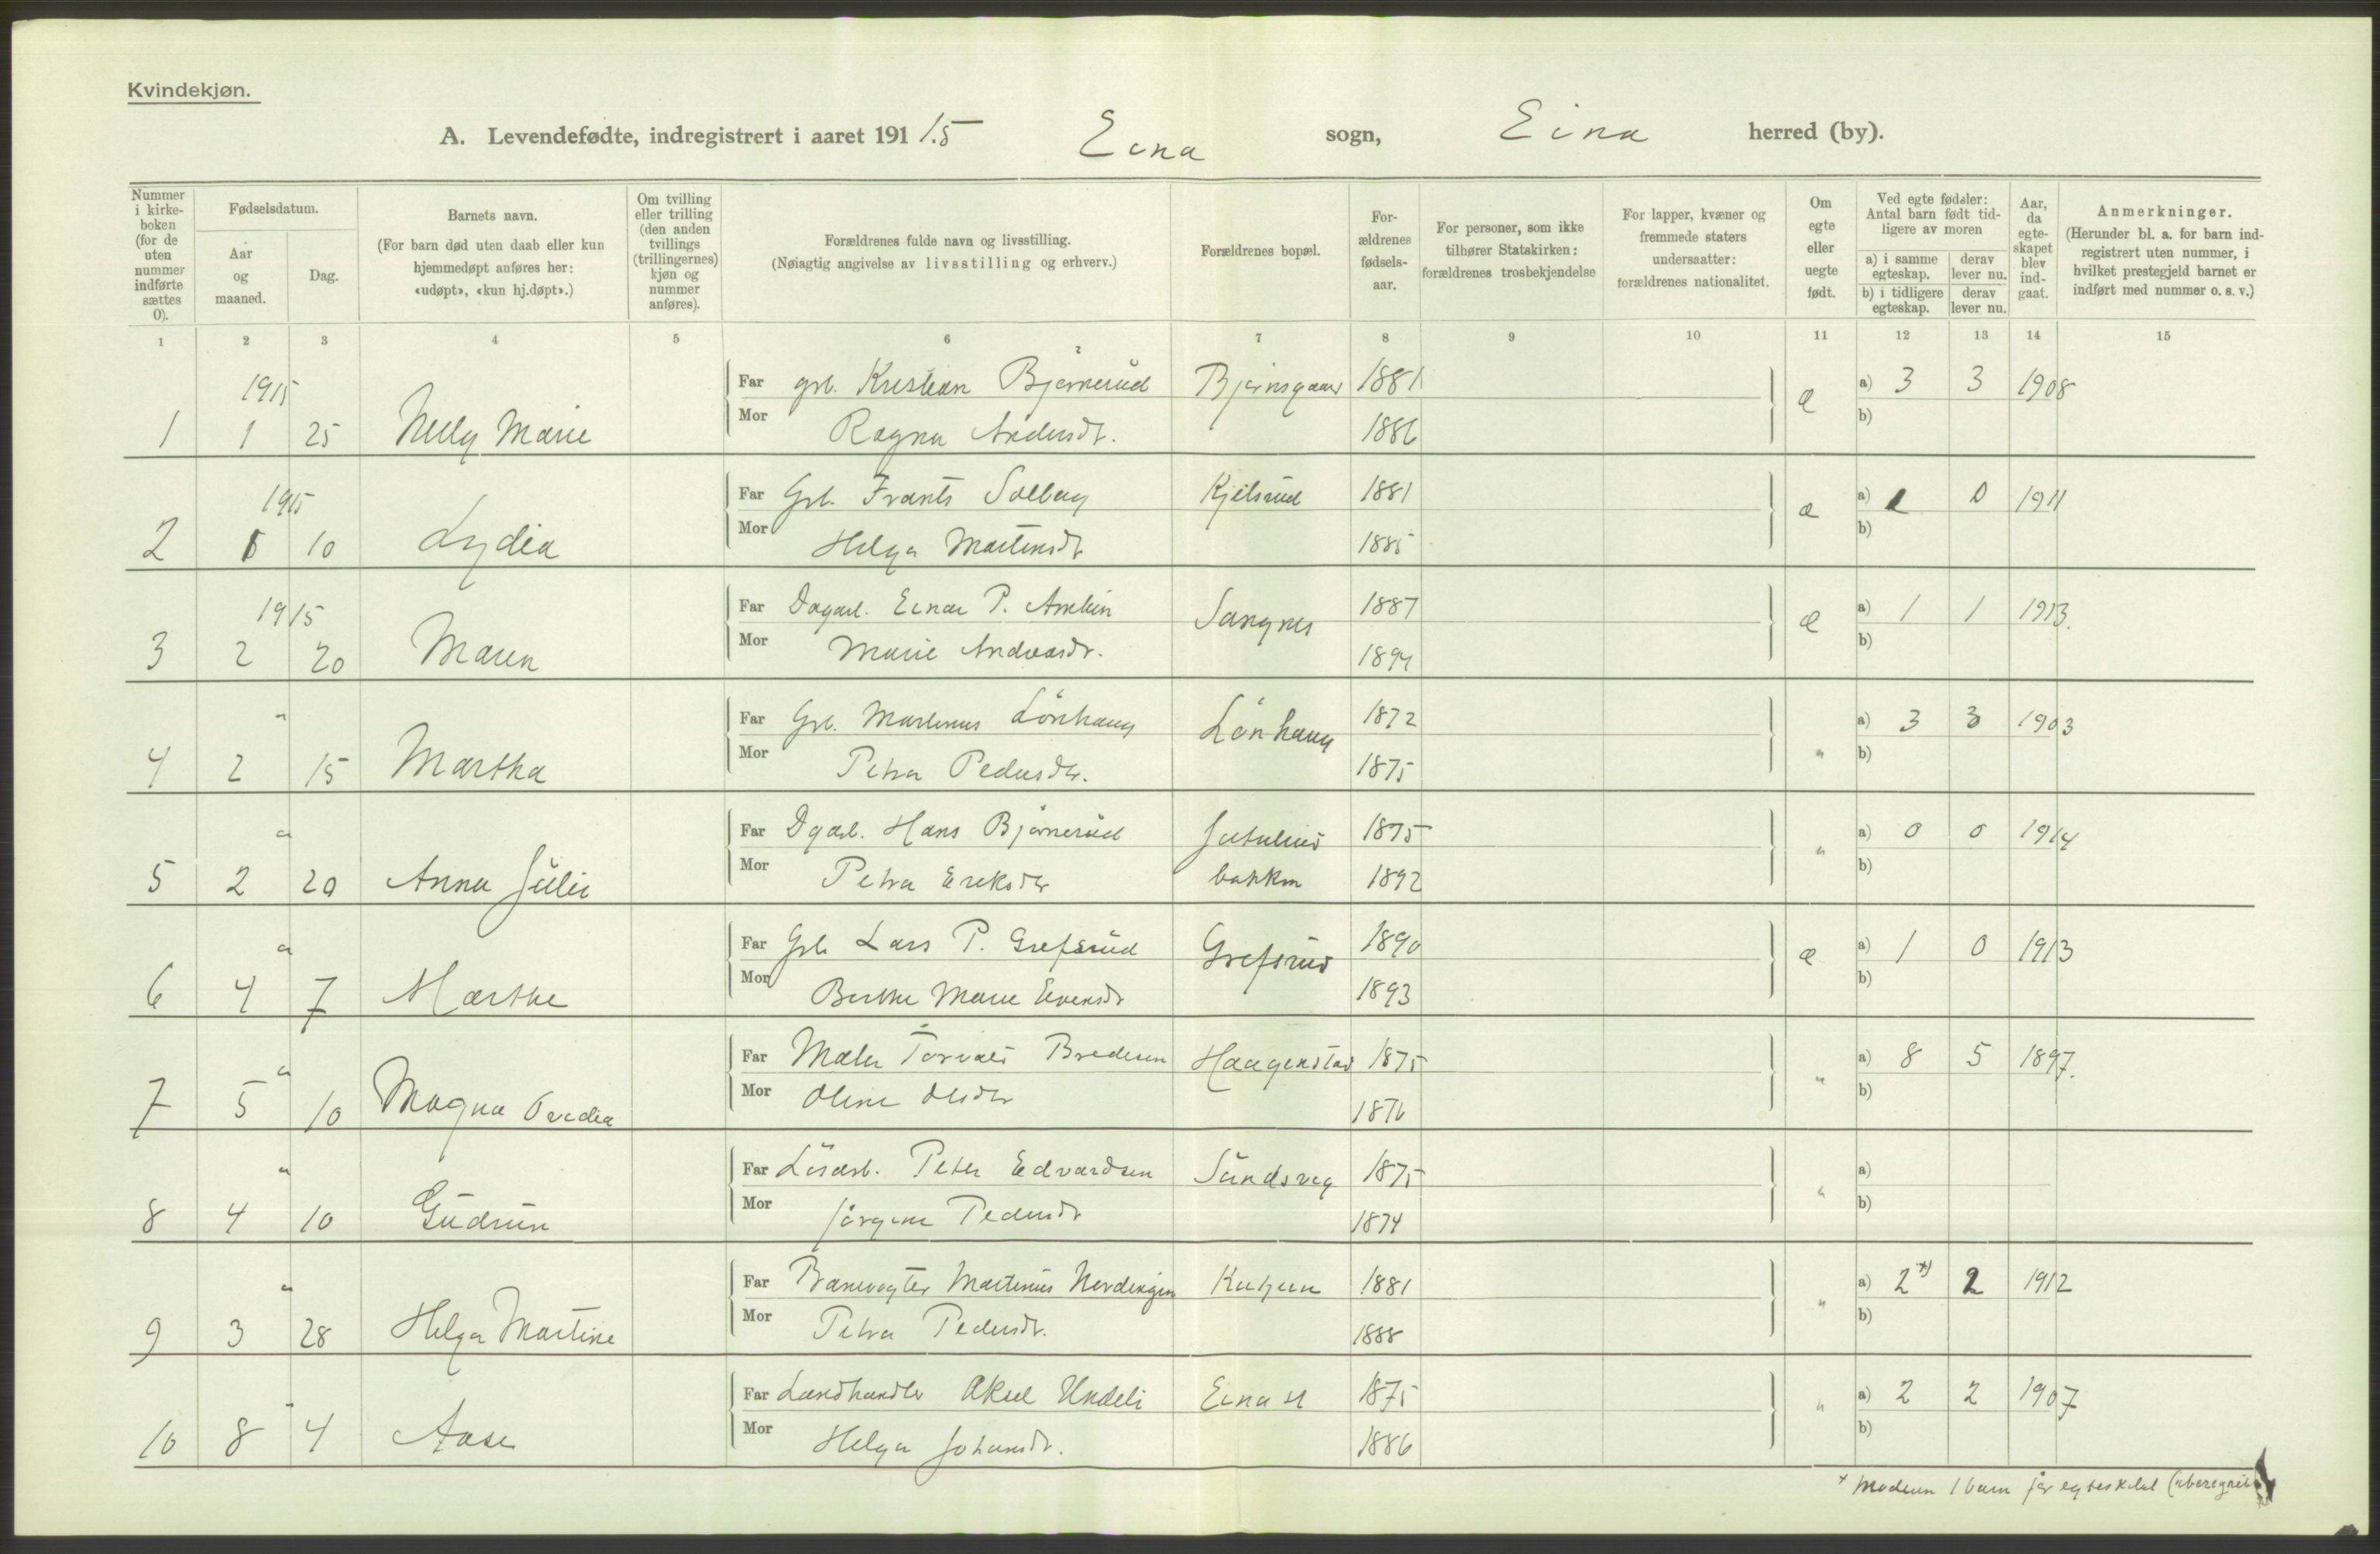 Kvindekjøn.
A. Levendefødte, indregistrert i aaret 1915 Eina sogn, Eina herred (by).
Nummer i kirke-boken (for de uten nummer indførte sættes 0).
Fødselsdatum.
Aar og maaned.
Dag.
Barnets navn.
(For barn død uten daab eller kun hjemmedøpt anføres her: «udøpt», «kun hj.døpt».)
Om tvilling eller trilling (den anden tvillings (trillingernes) kjøn og nummer anføres).
Forældrenes fulde navn og livsstilling.
(Nøiagtig angivelse av livsstilling og erhverv.)
Forældrenes bopæl.
For-ældrenes fødsels-aar.
For personer, som ikke tilhører Statskirken: forældrenes trosbekjendelse
For lapper, kvæner og fremmede staters undersaatter: forældrenes nationalitet.
Om egte eller uegte født.
Ved egte fødsler: Antal barn født tid-ligere av moren
a) i samme egteskap.
derav lever nu.
b) i tidligere egteskap.
derav lever nu.
Aar, da egte-skapet blev ind-gaat.
Anmerkninger.
(Herunder bl. a. for barn ind-registrert uten nummer, i hvilket prestegjeld barnet er indført med nummer o. s. v.)
1 2 3 4 5 6 7 8 9 10 11 12 13 14 15
1915 Far grb. Kristian Bjørnerud Bjørnsgaard 1881 a) 3 3 1908
1 1 25 Nelly Marie Mor Ragna Andersdt. 1886 æ b)
1915 Far Grb. Frants Solberg Kjelsrud 1881 a) 0 1911
2 10 Lydia Mor Helga Martinsdt 1885 æ b)
1915 Far Dagarb. Einar P. Sangnes 1887 a) 1 1 1913.
3 2 20 Maren Mor Marie Andreasdr. 1894 æ b)
" Far Grb. Martinus Lönhaug Lönhaug 1872 a) 3 3 1903
4 2 15 Martha Mor Petra Pedersdtr. 1875 " b)
" Far Dgarb. Hans Bjørnerud 1875 a) 0 0 1914
5 2 20 Anna Julie Mor Petra Eriksdtr bakken 1892 " b)
" Far Grb Lars P. Grefsrud Grefsrud 1890 a) 1 0 1913
6 4 7 Marthe Mor Berthe Marie Evensdt 1893 æ b)
" Far Maler Torvald Bredesen Haagenstad 1875 a) 8 5 1897.
7 5 10 Magna Ovedia Mor Oline Olsdtr 1876 " b)
" Far Lösarb. Peter Edvardsen Sundsveg 1875 a)
8 4 10 Gudrun Mor Jørgine Pedersdt 1874 " b)
" Far Banevogter Martinus Nerdengen 1881 a) 2 x) 2 1912
9 3 28 Helga Martine Mor Petra Pedersdt. 1888 " b)
" Far Landhandler Aksel Undeli Eina st 1875 a) 2 2 1907
10 8 4 Aase Mor Helga Johansdt. 1886 " b)
x Moderen 1 barn før egteskabet (uberegnet)